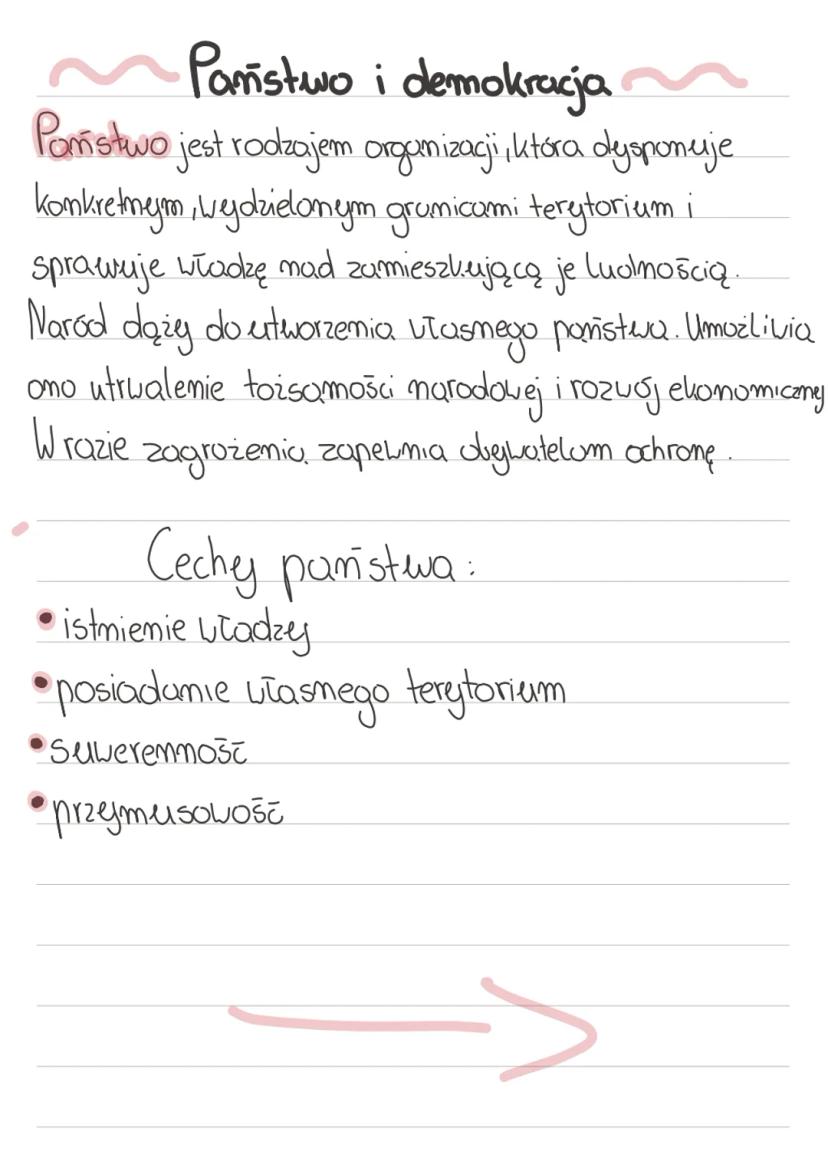 Państwo i demokracja
Państwo jest rodzajem organizacji, która dysponuje
konkretnym, wydzielonym granicami terytorium i
sprawuje władzę nad zamieszkującą je ludnością.
Naród dąży do utworzenia własnego państwa. Umożliwia
ono utrwalenie tożsamości narodowej i rozwój ekonomiczny
W razie zagrożenia zapewnia obywatelom ochronę.
Cechy państwa:
•istnienie władzy
•posiadanie własnego terytorium
•suwerenność
•przymusowość